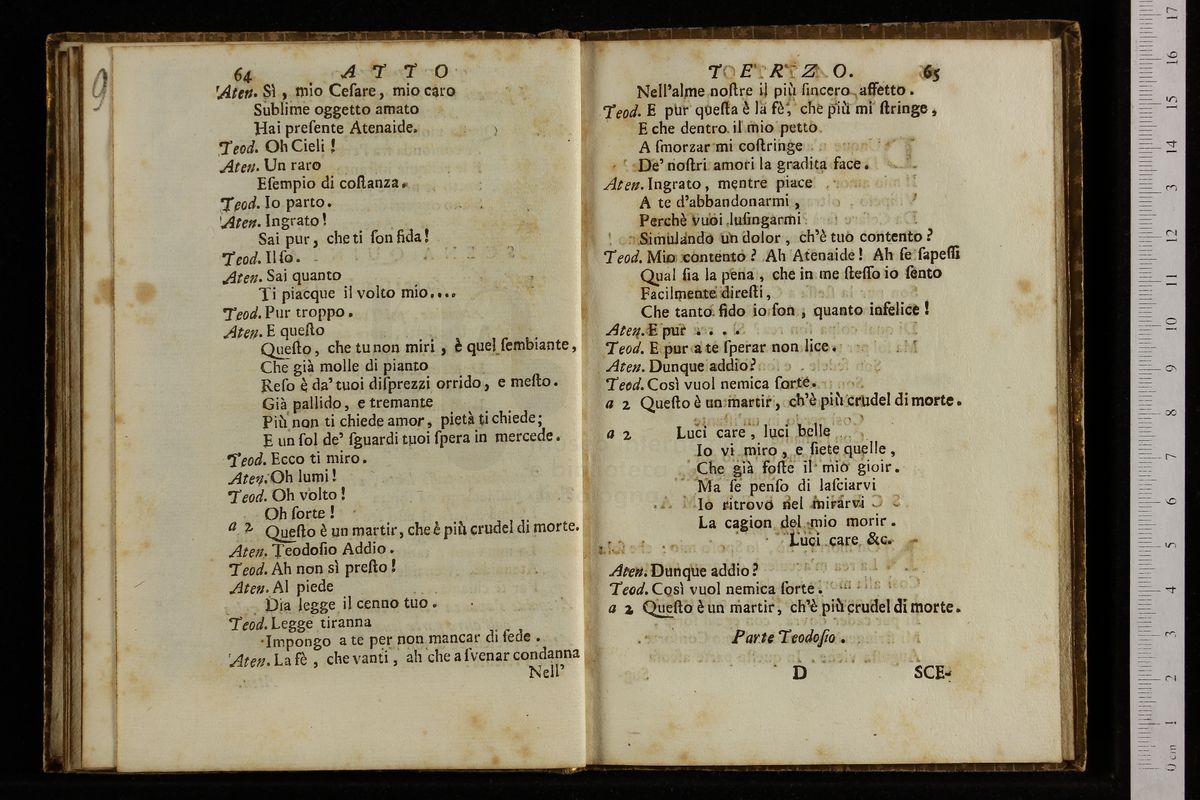 9
64 ATTO
Aten. Sì, mio Ceſare, mio caro
Sublime oggetto amato
Hai preſente Atenaide.
Teod. Oh Cieli!
Aten. Un raro
Eſempio di coſtanza.
Teod. Io parto.
Aten. Ingrato!
Sai pur, che ti ſon fida!
Teod. Il ſo.
Aten. Sai quanto
Ti piacque il volto mio....
Teod. Pur troppo.
Aten. E queſto
Queſto, che tu non miri, è quel ſembiante,
Che già molle di pianto
Reſo è da' tuoi diſprezzi orrido, e meſto.
Già pallido, e tremante
Più non ti chiede amor, pietà ti chiede;
E un ſol de' ſguardi tuoi ſpera in mercede.
Teod. Ecco ti miro.
Aten. Oh lumi!
Teod. Oh volto!
Oh ſorte!
a 2 Queſto è un martir, che è più crudel di morte.
Aten. Teodoſio Addio.
Teod. Ah non sì preſto!
Aten. Al piede
Dia legge il cenno tuo.
Teod. Legge tiranna
Impongo a te per non mancar di fede.
Aten. La fè, che vanti, ah che a ſvenar condanna
Nell'
TERZO. 65
Nell'alme noſtre il più ſincero affetto.
Teod. E pur queſta è la fè, che più mi ſtringe,
E che dentro il mio petto
A ſmorzar mi coſtringe
De' noſtri amori la gradita face.
Aten. Ingrato, mentre piace
A te d'abbandonarmi,
Perchè vuoi luſingarmi
Simulando un dolor, ch'è tuo contento?
Teod. Mio contento? Ah Atenaide! Ah ſe ſapeſſi
Qual ſia la pena, che in me ſteſſo io ſento
Facilmente direſti,
Che tanto fido io ſon, quanto infelice!
Aten. E pur ....
Teod. E pur a te ſperar non lice.
Aten. Dunque addio?
Teod. Così vuol nemica ſorte.
a 2 Queſto è un martir, ch'è più crudel di morte.
a 2 Luci care, luci belle
Io vi miro, e ſiete quelle,
Che già foſte il mio gioir.
Ma ſe penſo di laſciarvi
Io ritrovo nel mirarvi
La cagion del mio morir.
Luci care &c.
Aten. Dunque addio?
Teod. Così vuol nemica ſorte.
a 2 Queſto è un martir, ch'è più crudel di morte.
Parte Teodoſio.
D SCE-
0 cm 1 2 3 4 5 6 7 8 9 10 11 12 13 14 15 16 17